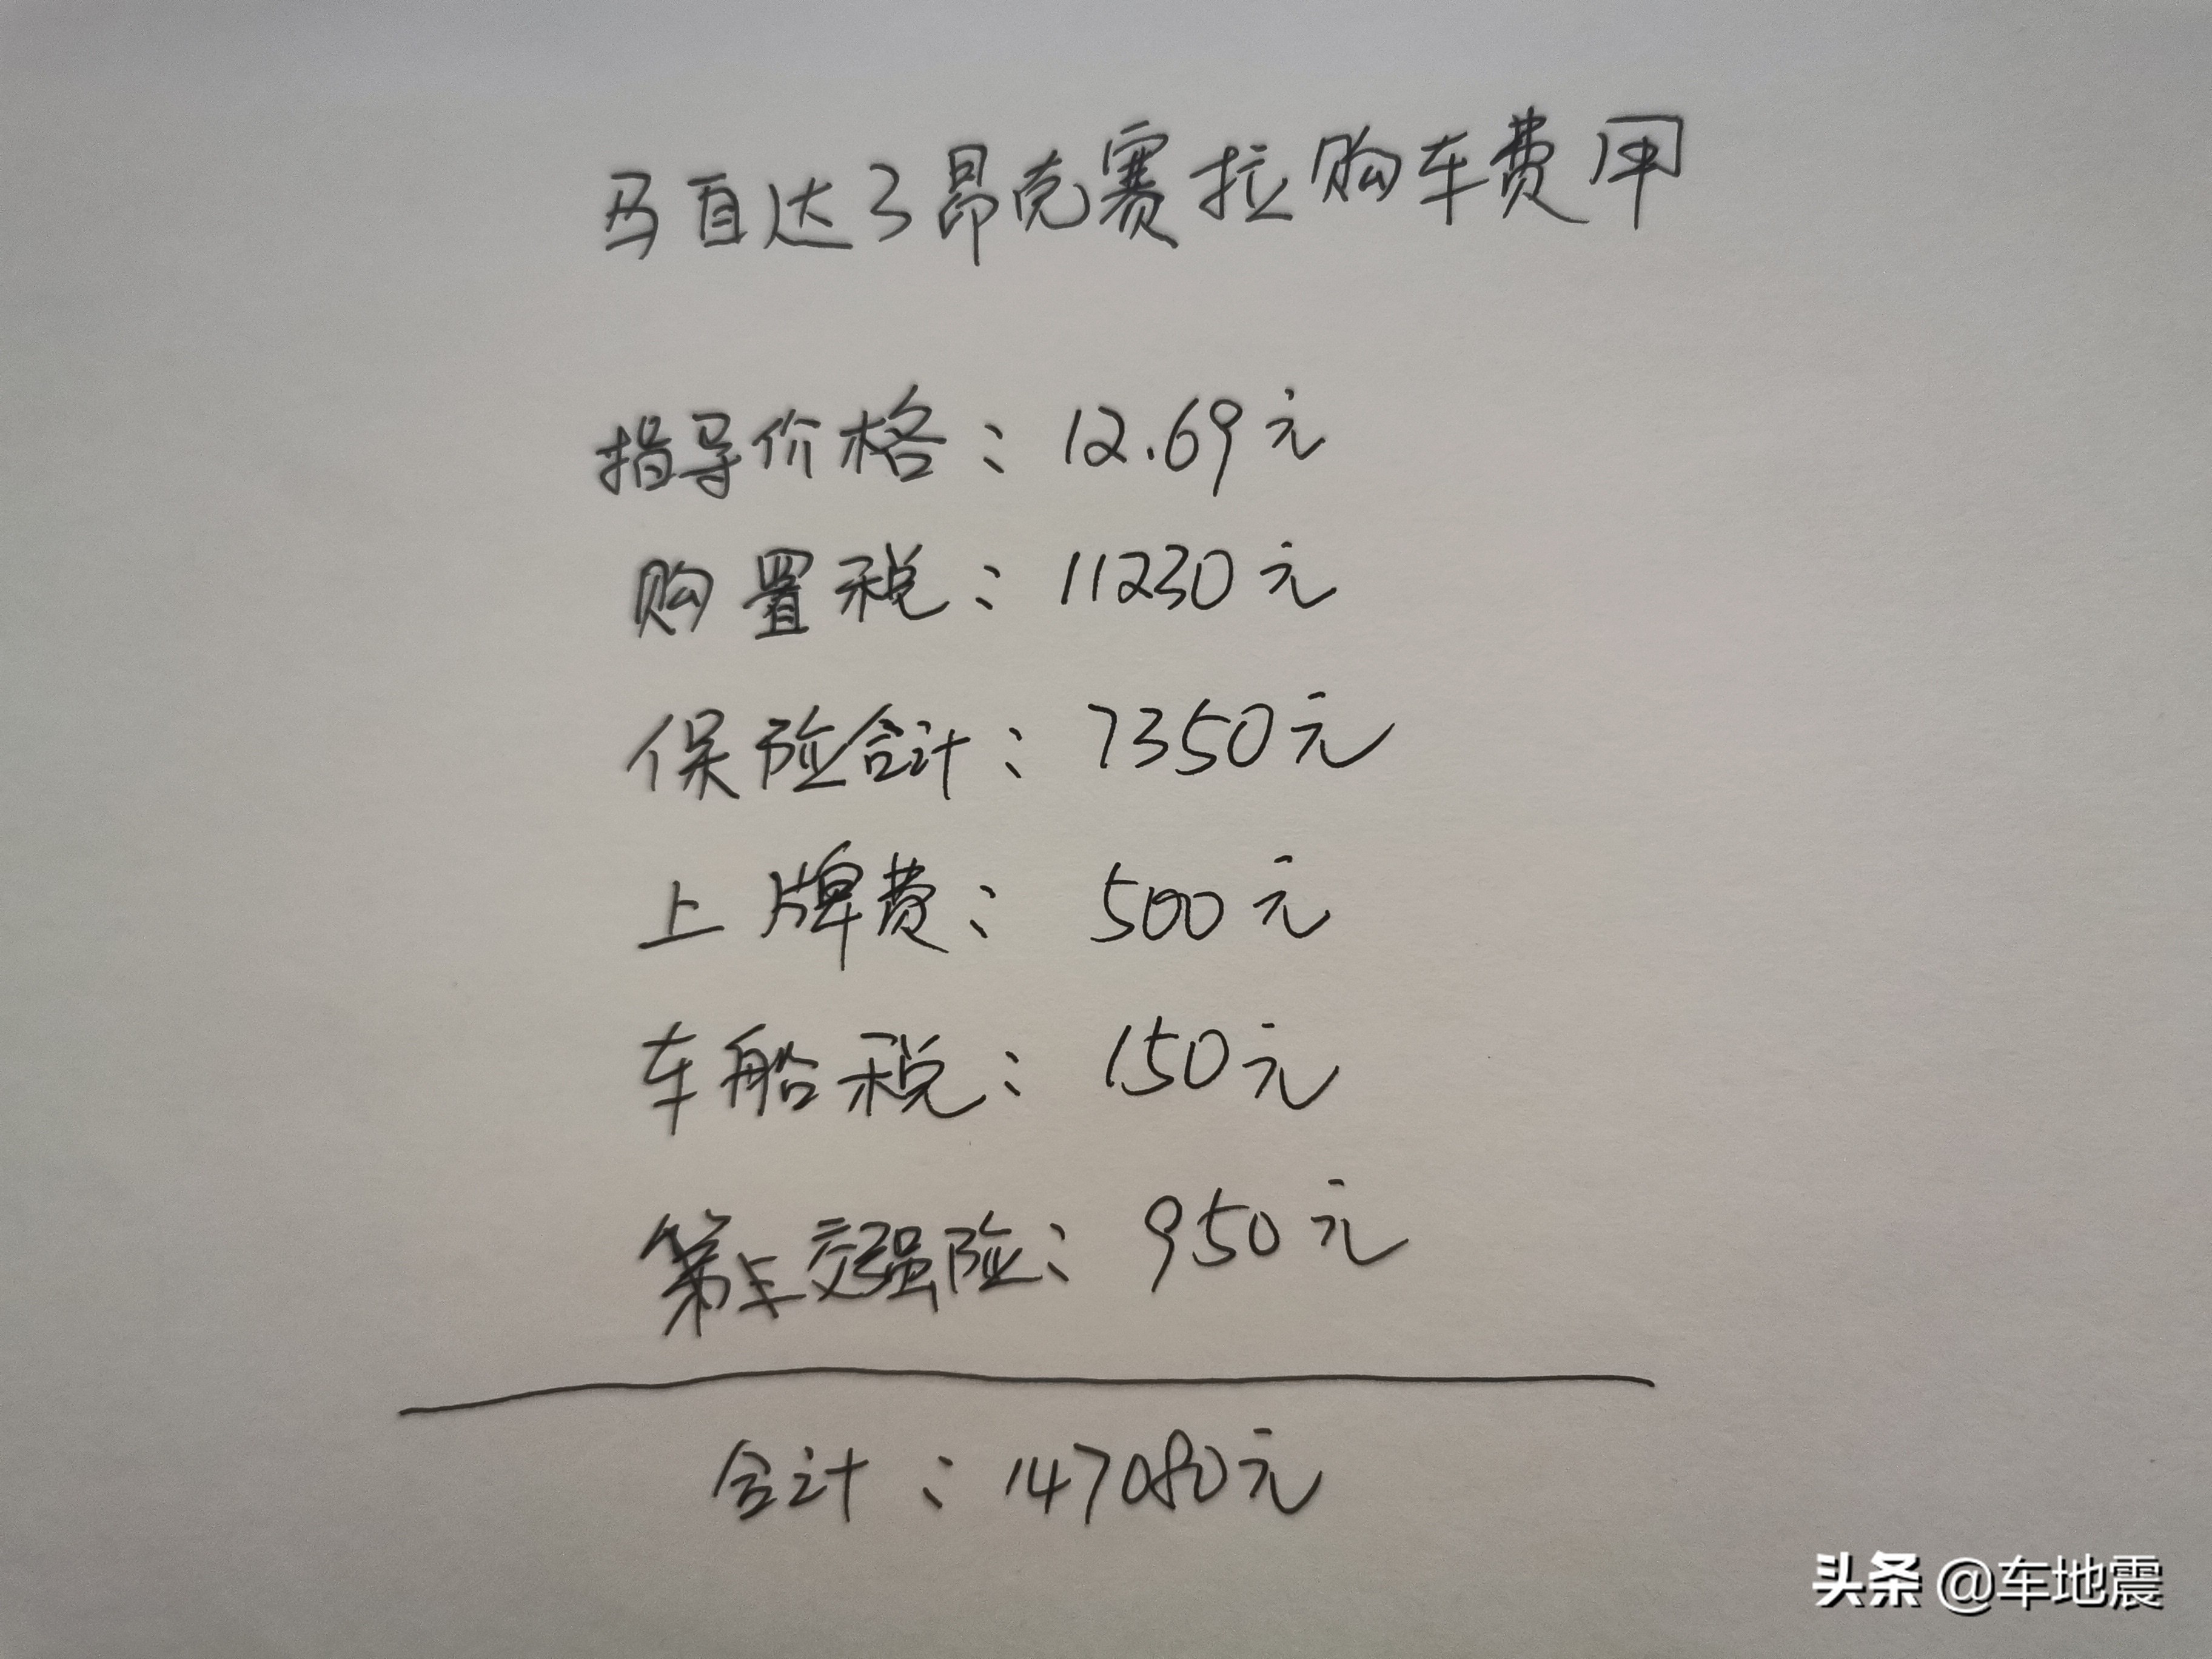 马自达3昂克赛拉购车费用
指导价格：12.69元
购置税：11230元
保险合计：7350元
上牌费：500元
车船税：150元
交强险：950元
合计：147080元
头条 @车地震